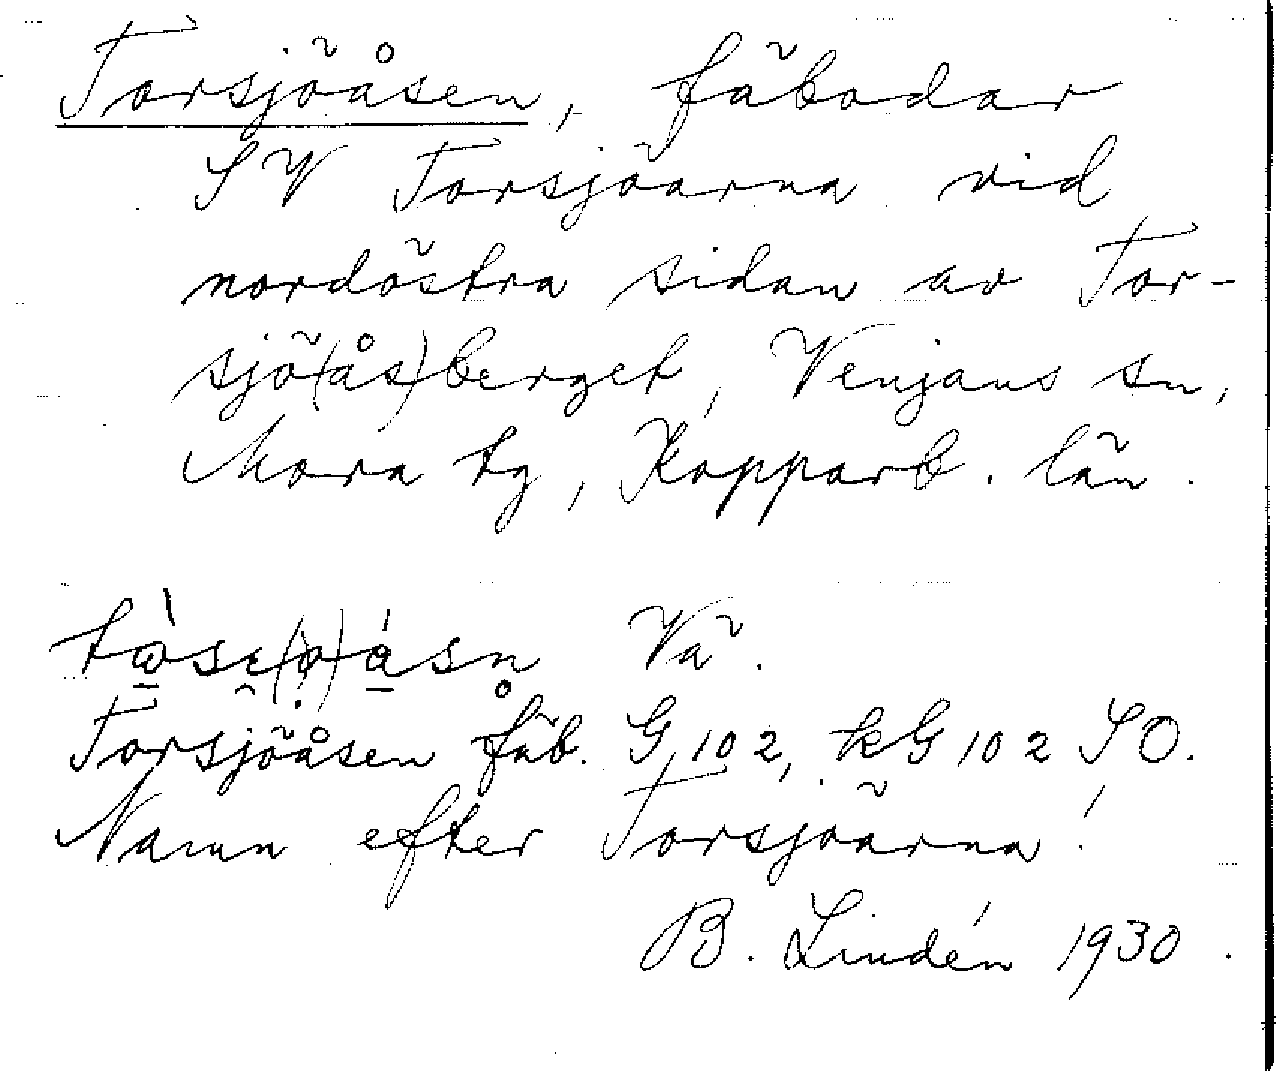 Torsjöåsen, fäbodar
SV Torsjöarna vid
nordöstra sidan av Tor-
sjö(ås)berget, Venjans sn,
Mora tg, Kopparb. län.
Vä.
Torsjöåsen fäb. G 102, kG 102 SO.
Namn efter Torsjöarna!
B. Lindén 1930.